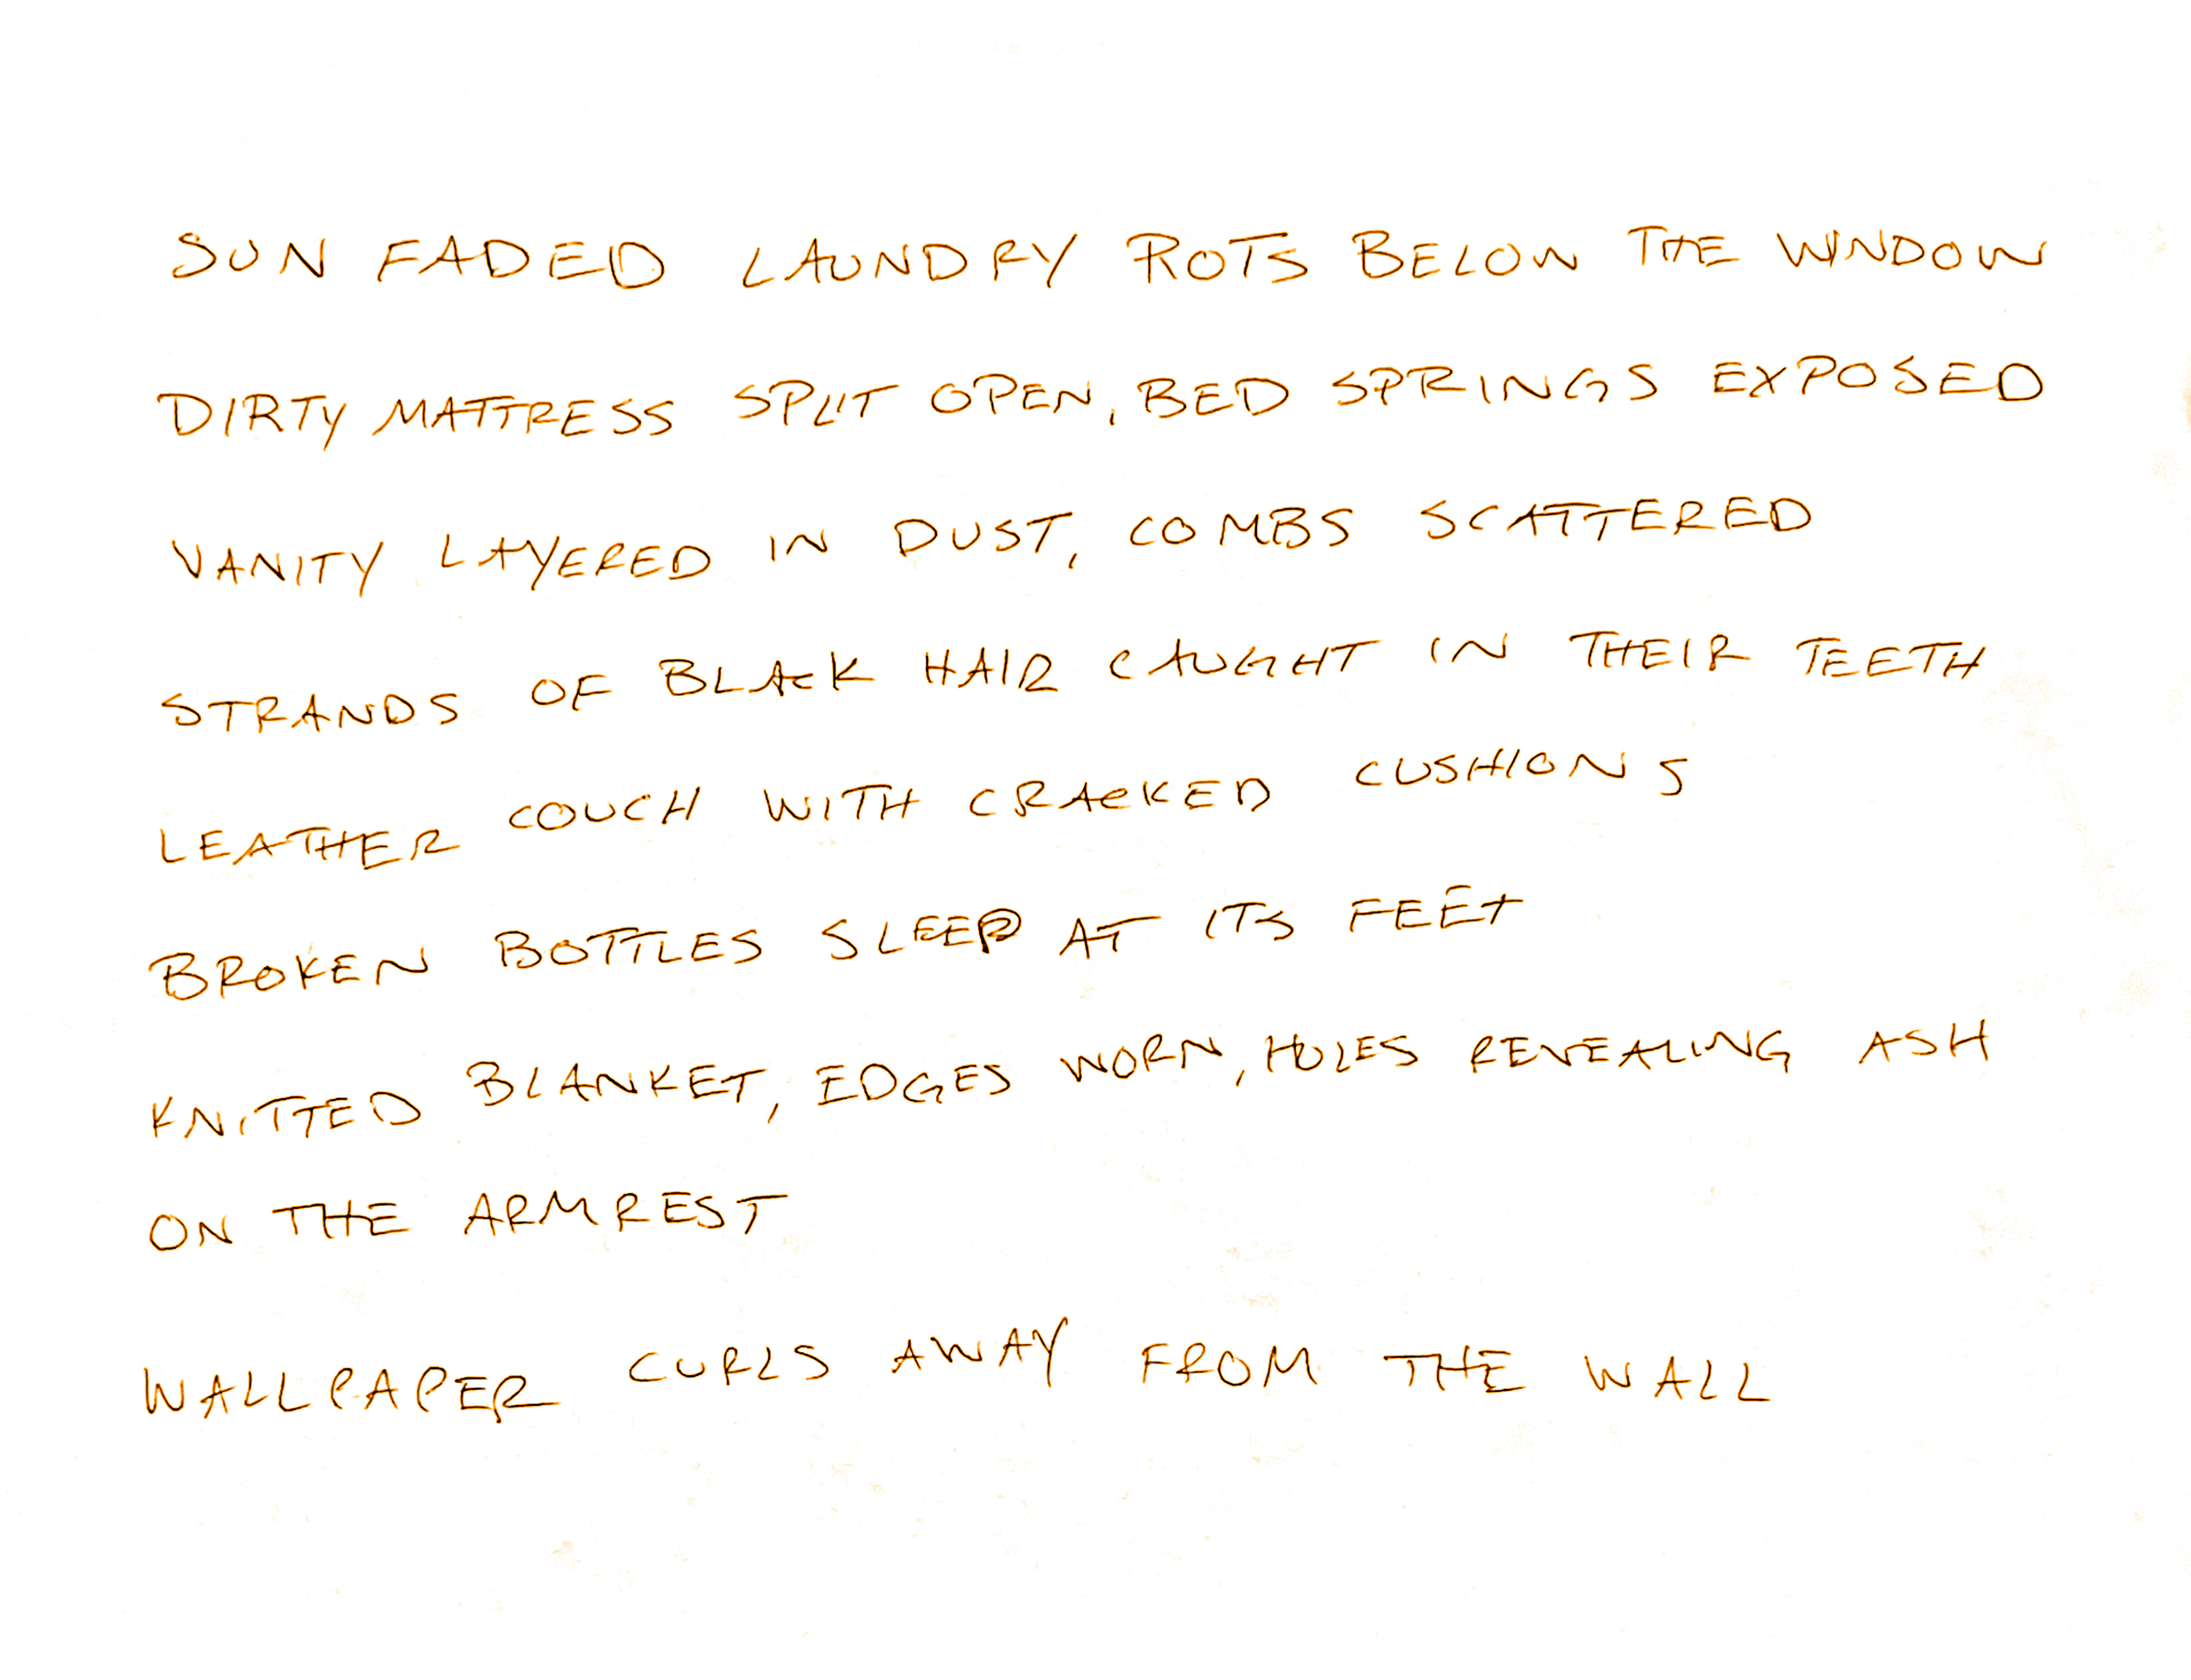 SUN FADED LAUNDRY ROTS BELOW THE WINDOW
DIRTY MATTRESS SPLIT OPEN, BED SPRINGS EXPOSED
VANITY LAYERED IN DUST, COMBS SCATTERED
STRANDS OF BLACK HAIR CAUGHT IN THEIR TEETH
LEATHER COUCH WITH CRACKED CUSHIONS
BROKEN BOTTLES SLEEP AT ITS FEET
KNITTED BLANKET, EDGES WORN, HOLES REVEALING ASH
ON THE ARMREST
WALLPAPER CURLS AWAY FROM THE WALL